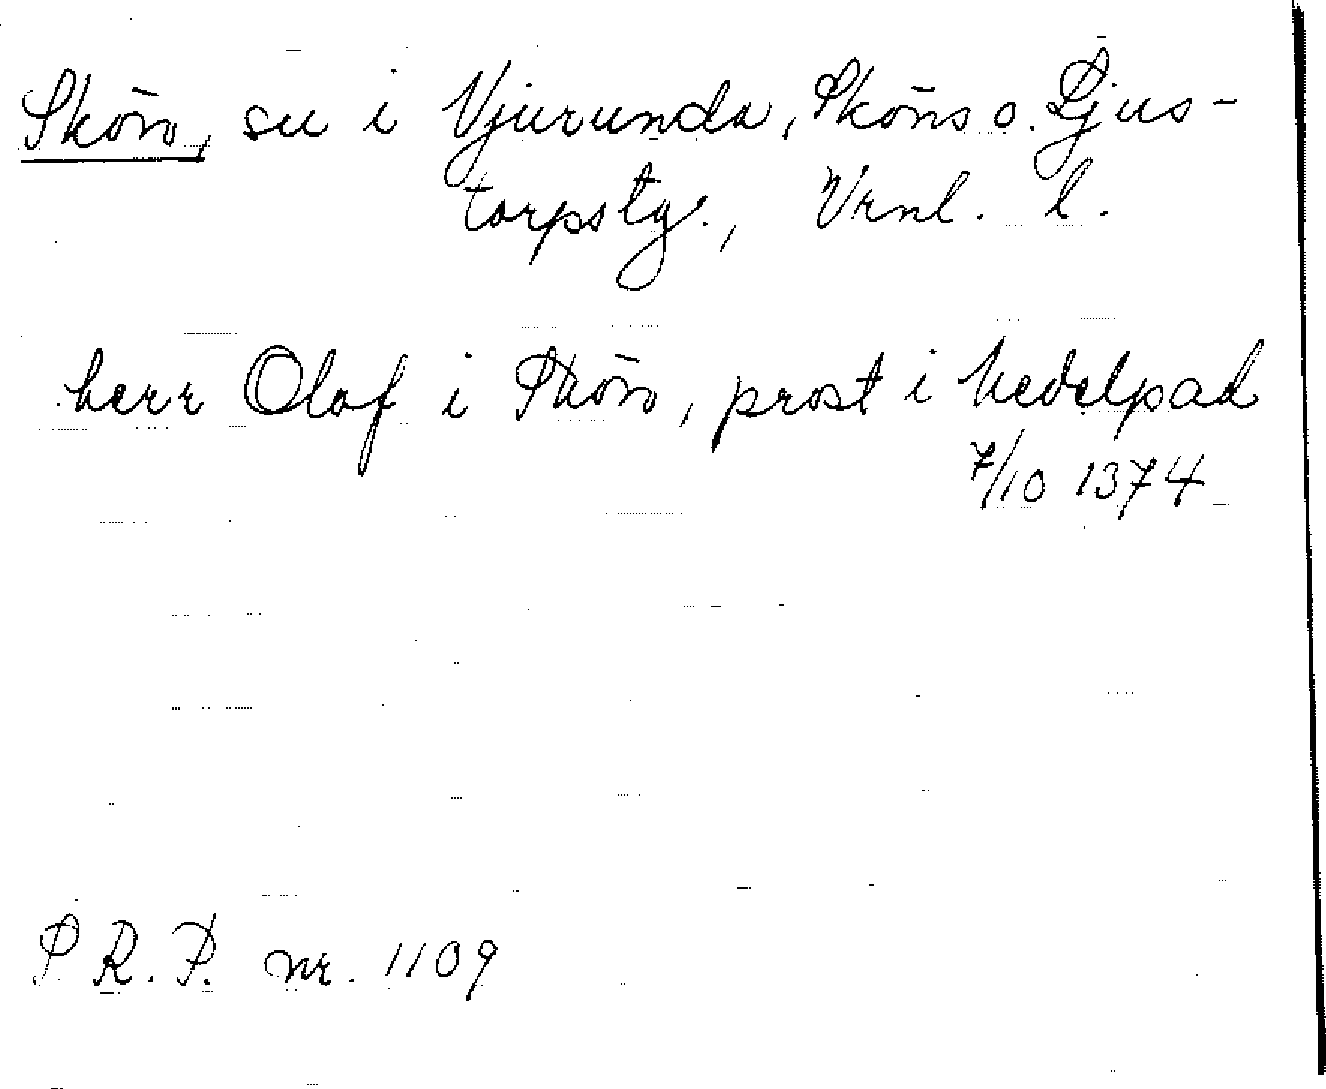 Skön, sn i Njurunda, Sköns o. Ljus-
torpstg., Vrnl. l.
herr Olof i Skön, prost i Medelpad
7/10 1374
P.R.P. nr. 1109